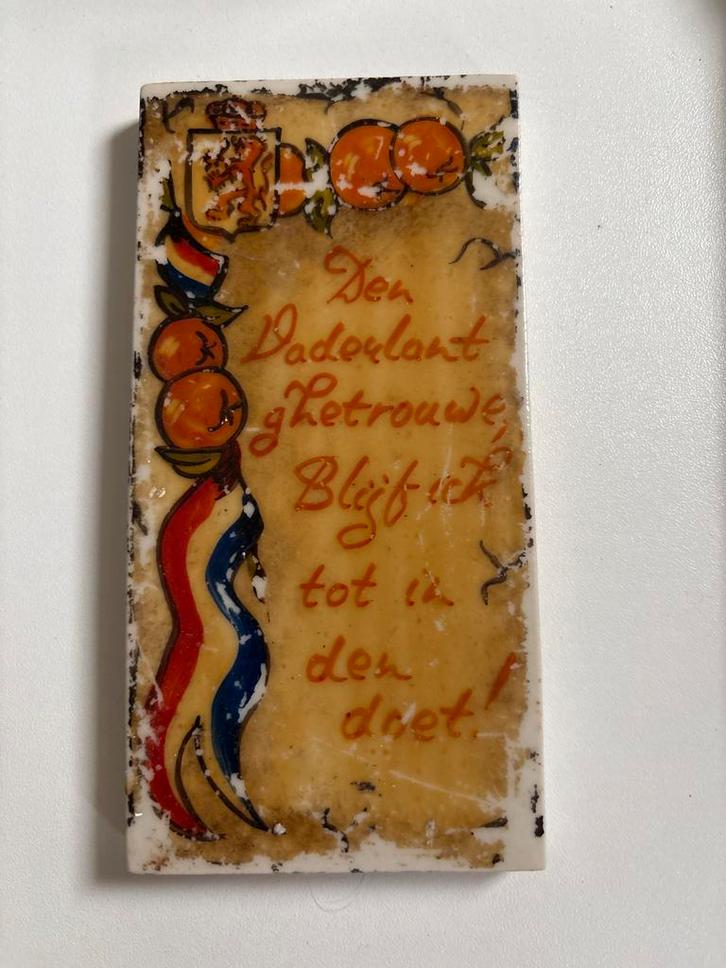 Den
Vaderlant
ghetrouwe,
Blijf ick
tot in
den
doet!